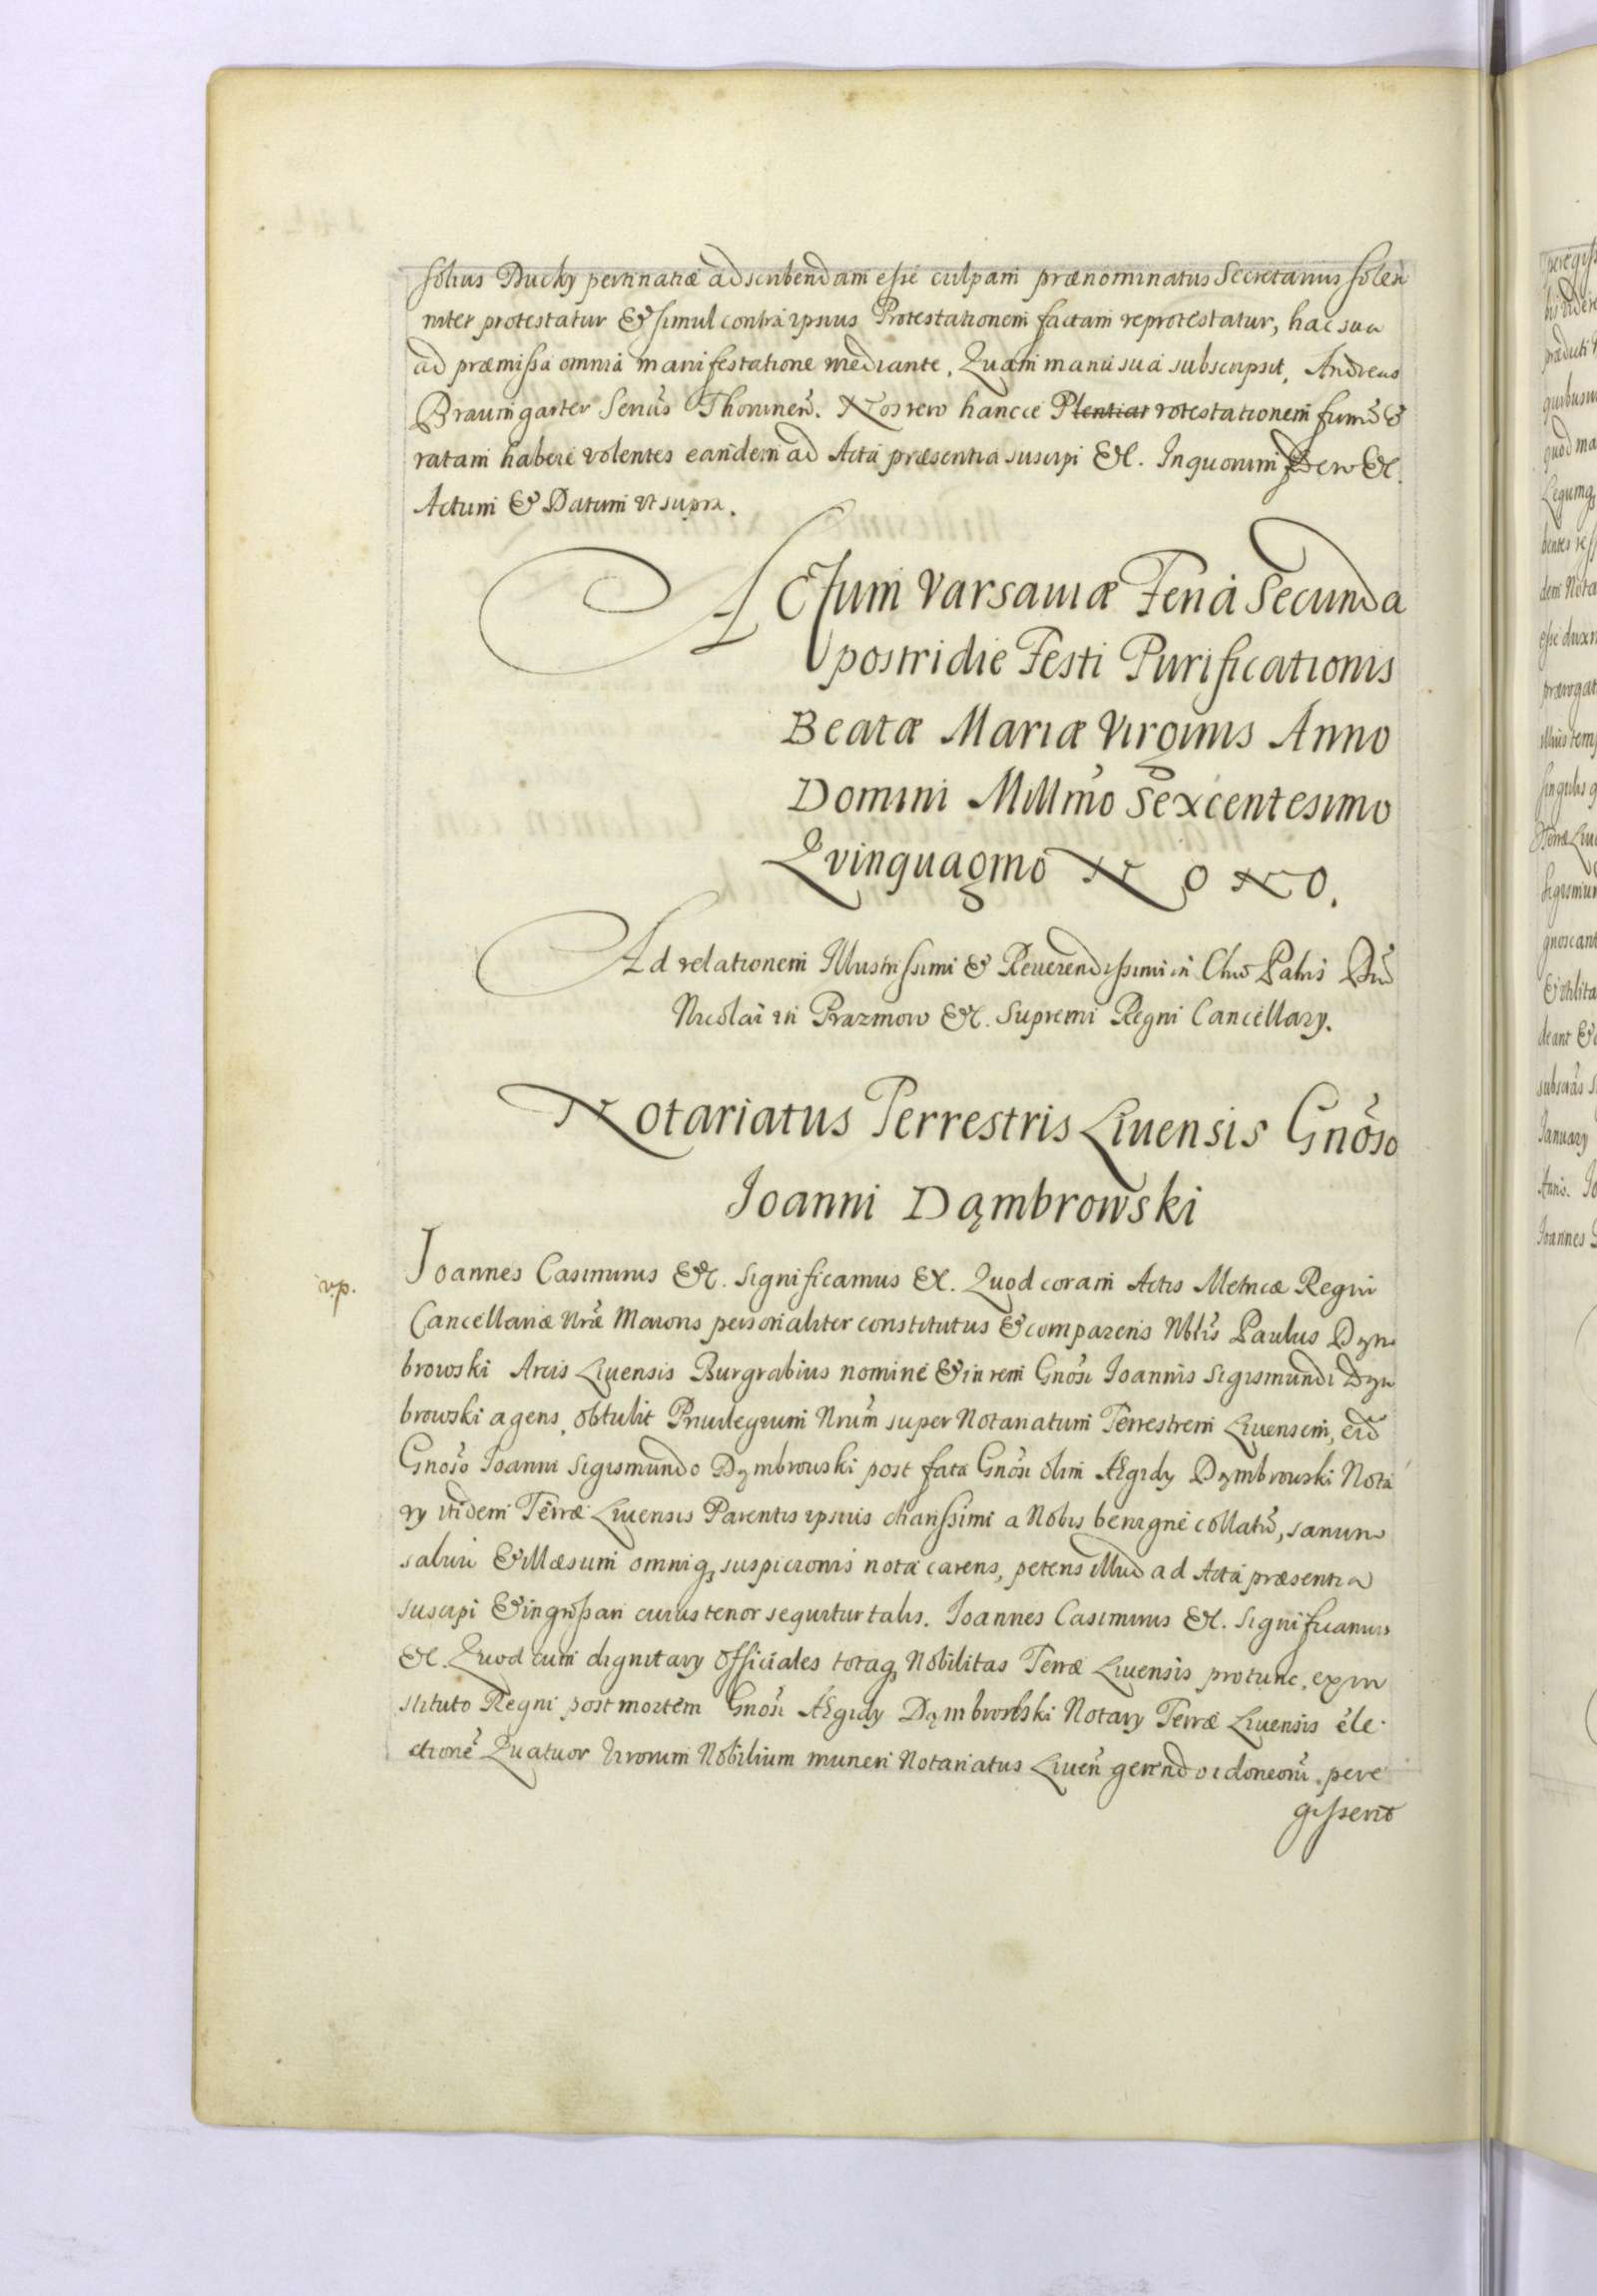 solius Ducky pertinatiæ adscribendam esse culpam prænominatus Secretarius solen
niter protestatur & simul contra ipsius Protestationem factam reprotestatur, hac sua
ad præmissa omnia manifestatione mediante, Quam manu sua subscripsit, Andreas
Braumgarter Secriũs Thoruneñ. Nos vero hancce Plentiat rotestationem firmã &
ratam habere volentes eandem ad Acta præsentia suscipi &c. In quorum fidem &c.
Actum & Datum ut supra.
ACtum Varsaviæ Feria Secunda
postridie Festi Purificationis
Beatæ Mariæ Virginis Anno
Domini Millmo Sexcentesimo
Qvinquagmo NONO.
Ad relationem Illustrissimi & Reverendissimi in Chro Patris Dñi
Nicolai in Prazmow &c. Supremi Regni Cancellary.
Notariatus Terrestris Livensis Gnoso
Joanni Dąmbrowski
v.p.
Joannes Casimirus &c. Significamus &c. Quod coram Actis Metricæ Regni
Cancellariæ Nræ Maioris personaliter constitutus & comparens Nblis Paulus Dąm
browski Arcis Livensis Burgrabius nomine & in rem Gnosi Joannis Sigismundi Dąm
browski agens, obtulit Privilegium Nrum super Notariatum Terrestrem Livensem, eid
Gnoso Joanni Sigismundo Dąmbrowski post fata Gnosi olim Ægidy Dąmbrowski Nota
ry itidem Terræ Livensis Parentis ipsius charissimi a Nobis benigne collatũ, sanum
salvũ & illæsum omniq suspicionis nota carens, petens illud ad Acta præsentia
suscipi & ingrossari cuius tenor sequitur talis. Joannes Casimirus &c. Significamus
&c. Quod cum dignitary Officiales totaq Nobilitas Terræ Livensis pro tunc, ex in
stituto Regni post mortem Gnosi Ægidy Dąmbrowski Notary Terræ Livensis ele
ctionẽ Quatuor Virorum Nobilium muneri Notariatus Liveñ gerendo idoneorũ pere
gissent